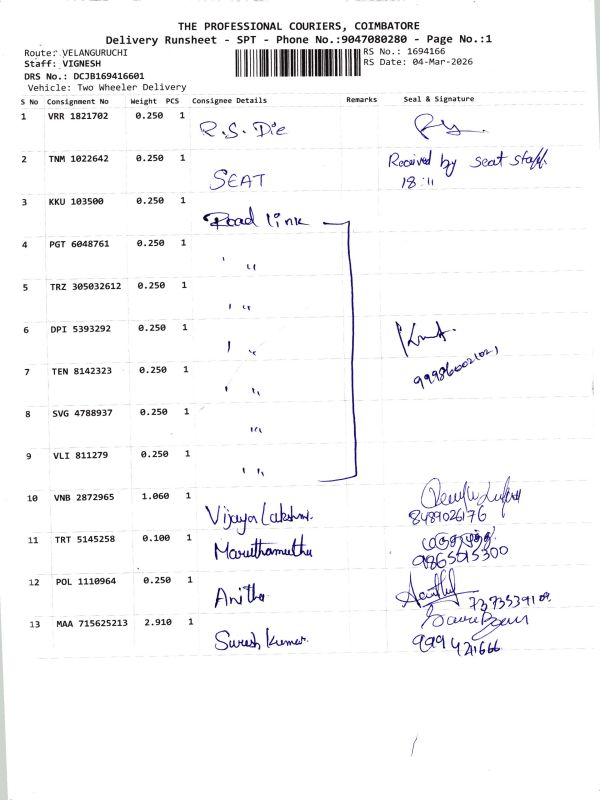 THE PROFESSIONAL COURIERS, COIMBATORE
Delivery Runsheet - SPT - Phone No.:9047080280 - Page No.:1
Route: VELANGURUCHI
RS No.: 1694166
Staff: VIGNESH
RS Date: 04-Mar-2026
DRS No.: DCJB169416601
Vehicle: Two Wheeler Delivery
S No Consignment No Weight PCS Consignee Details Remarks Seal & Signature
1 VRR 1821702 0.250 1 R.S. Die
2 TNM 1022642 0.250 1 SEAT Received by seat staff
18:11
3 KKU 103500 0.250 1 Road link
4 PGT 6048761 0.250 1 " "
5 TRZ 305032612 0.250 1 " "
6 DPI 5393292 0.250 1 " "
7 TEN 8142323 0.250 1 " "
8 SVG 4788937 0.250 1 "
9 VLI 811279 0.250 1 " "
10 VNB 2872965 1.060 1 Vijaya Lakshmi.
8489026176
11 TRT 5145258 0.100 1 Maruthamuthu
9865015300
12 POL 1110964 0.250 1 Anitha
13 MAA 715625213 2.910 1 Suresh Kumar.